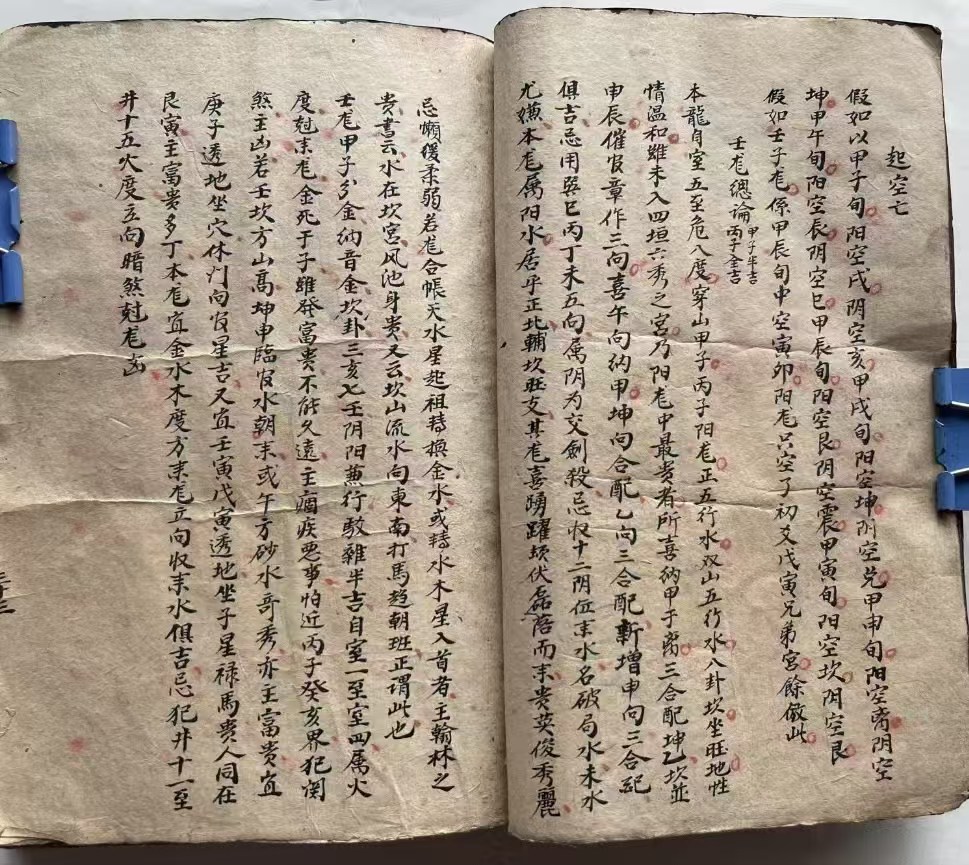 起空亡
假如以甲子旬阳空戌阴空亥甲戌旬阳空坤阴空兑甲申旬阳空离阴空
坤甲午旬阳空辰阴空巳甲辰旬阳空艮阴空震甲寅旬阳空坎阴空艮
假如壬子龙系甲辰旬中空寅卯阳龙只空了初爻戊寅兄弟宫馀倣此
壬龙總论甲子半吉丙子全吉
本龍自室五至危八度穿山甲子丙子阳龙正五行水双山五行水八卦坎坐旺地性
情温和雖未入四垣六秀之宫乃阳龙中最贵者所喜纳甲子离三合配坤乙坎並
申辰催官章作三向喜午向纳甲坤向合配乙向三合配新增申向三合纪
俱吉忌用巽巳丙丁未五向属阴为交劍殺忌收十二阴位来水名破局水未水
尤嫌本龙属阳水居乎正北輔坎旺支其龙喜踴躍顿伏磊落而来贵英俊秀麗
忌懒缓柔弱若龙合帳天水星起祖轉换金水或轉水木星入首者主翰林之
贵書云水在坎宫风池身贵又云坎山流水向東南打馬趋朝班正谓此也
壬龙甲子分金纳音金坎卦三亥七壬阴阳兼行驳雜半吉自室一至室四属火
度尅来龙金死于子雖發富贵不能久遠主痼疾恶事怕近丙子癸亥界犯関
煞主凶若壬坎方山高坤申臨官水朝来或午方砂水奇秀亦主富贵宜
庚子透地坐穴休门向官星吉又宜壬寅戊寅透地坐子星禄馬贵人同在
艮寅主富贵多丁本龙宜金水木度方来龙立向收来水俱吉忌犯井十一至
井十五火度立向暗煞尅龙凶